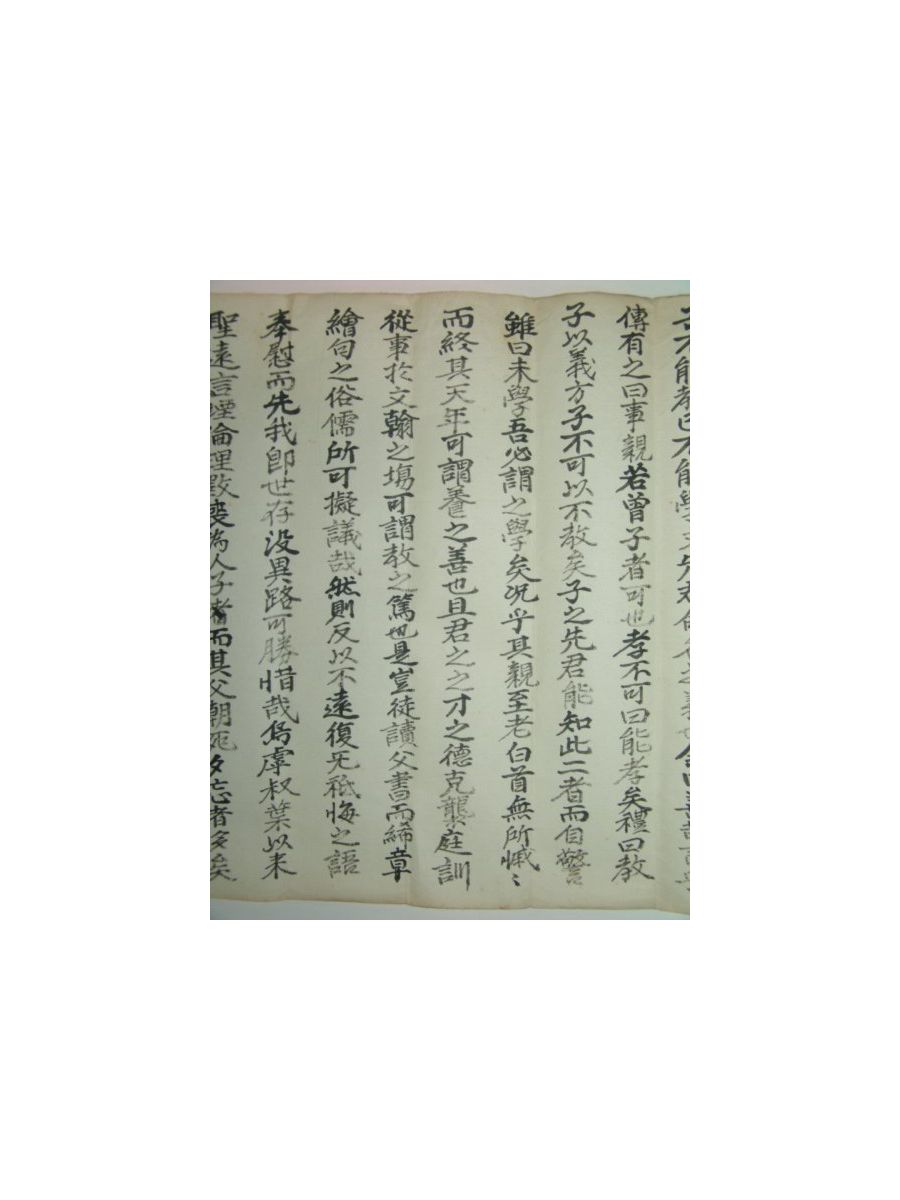 傳有之曰事親若曾子者可也孝不可曰能孝矣禮曰教
子以義方子不可以不教矣子之先君能知此二者而自警
雖曰未學吾必謂之學矣况乎其親至老白首無所憾〻
而終其天年可謂養之善也且君之之才之德克襲庭訓
從事於文翰之場可謂教之篤也是豈徒讀父書而絺章
繪句之俗儒所可擬議哉然則反以不遠復旡祗悔之語
奉慰而先我即世存没異路可勝惜哉烏虖叔葉以来
聖遠言湮倫理斁喪為人子者而其父朝死夕忘者多矣